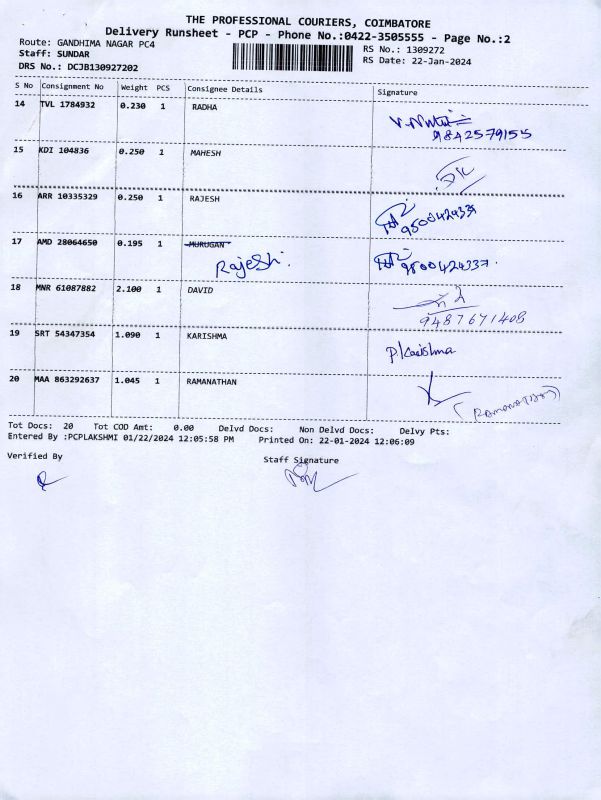 THE PROFESSIONAL COURIERS, COIMBATORE
Delivery Runsheet - PCP - Phone No.:0422-3505555 - Page No.:2
Route: GANDHIMA NAGAR PC4
RS No.: 1309272
Staff: SUNDAR
RS Date: 22-Jan-2024
DRS No.: DCJB130927202
S No Consignment No Weight PCS Consignee Details Signature
14 TVL 1784932 0.230 1 RADHA
9842579155
15 KDI 104836 0.250 1 MAHESH
16 ARR 10335329 0.250 1 RAJESH
9500424337
17 AMD 28064650 0.195 1 MURUGAN
Rajeshi. 9500424337.
18 MNR 61087882 2.100 1 DAVID
9487671408
19 SRT 54347354 1.090 1 KARISHMA
P/Karishma
20 MAA 863292637 1.045 1 RAMANATHAN
Tot Docs: 20 Tot COD Amt: 0.00 Delvd Docs: Non Delvd Docs: Delvy Pts:
Entered By :PCPLAKSHMI 01/22/2024 12:05:58 PM Printed On: 22-01-2024 12:06:09
Verified By Staff Signature